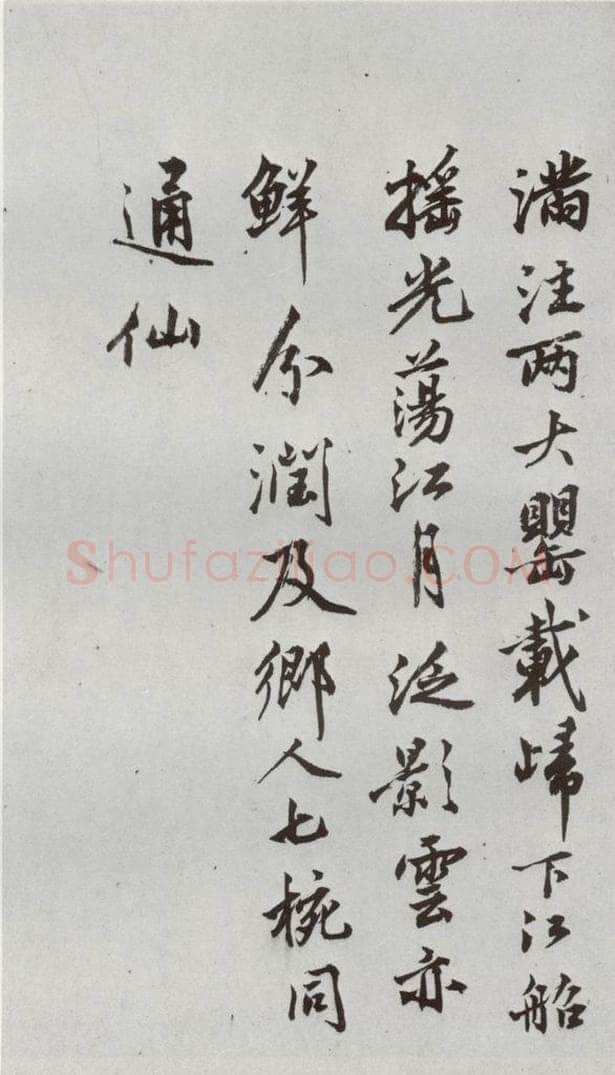 滿注兩大罌載歸下江船
摇光蕩江月泛影雲亦
鮮分潤及鄉人七椀同
通仙
Shufaziliao.COM